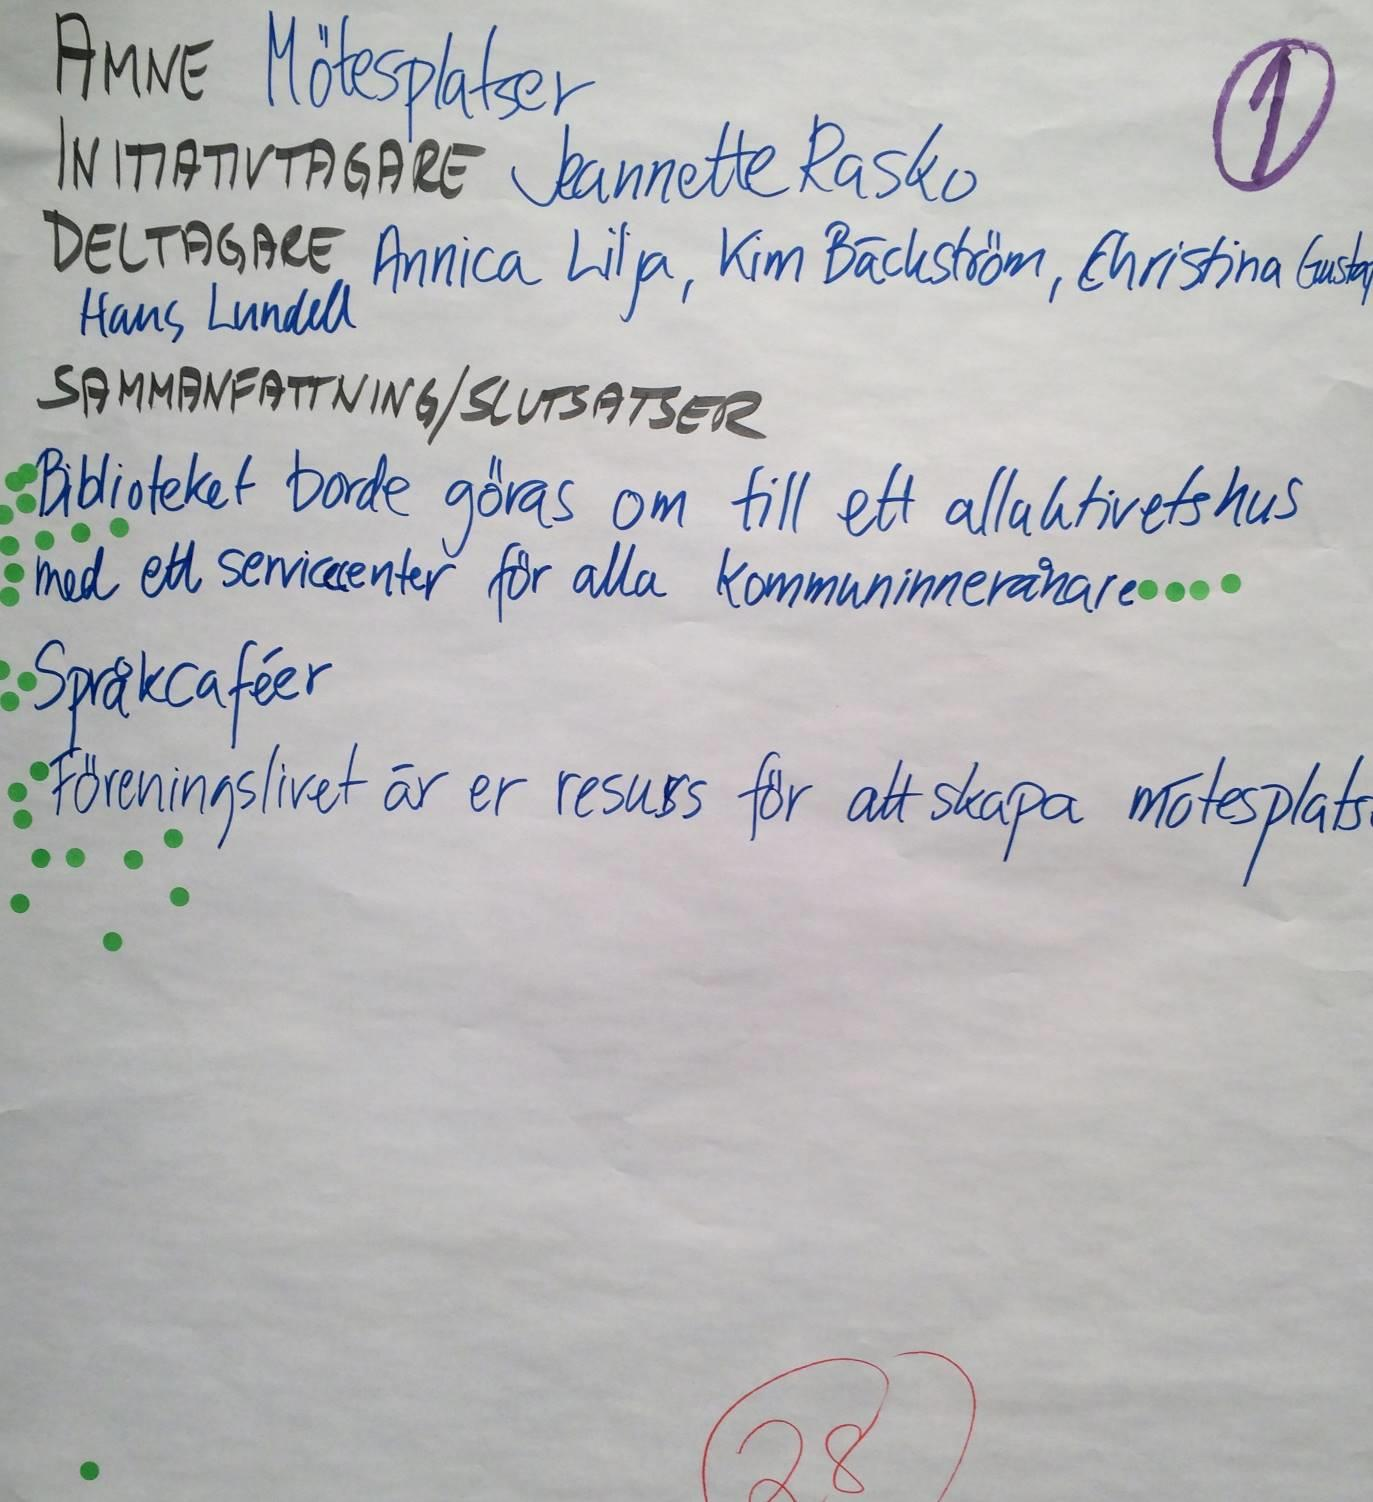 ÄMNE Mötesplatser
1
INITIATIVTAGARE Jeannette Rasko
DELTAGARE Annica Lilja, Kim Bäckström, Christina Gustaf
Hans Lundell
SAMMANFATTNING/SLUTSATSER
Biblioteket borde göras om till ett allaktivetshus
med ett servicecenter för alla kommuninnevånare
Språkcaféer
Föreningslivet är er resurs för att skapa mötesplats
28